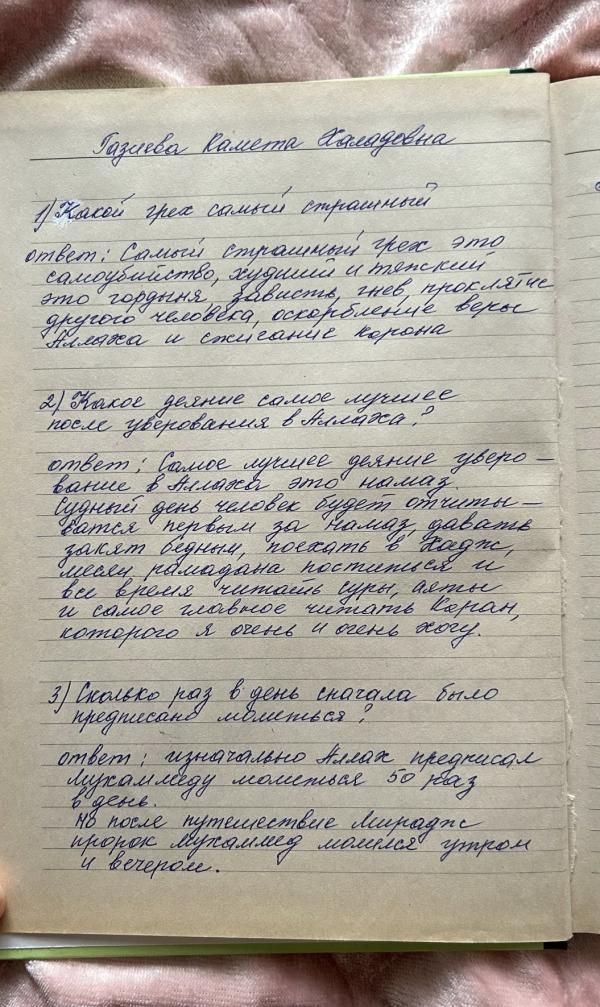 Газиева Камета Халадовна
1) Какой грех самый страшный
ответ: Самый страшный грех это
самоубийство, худший и тяжский
это гордыня, зависть, гнев, проклятие
другого человека, оскорбление веры
Аллаха и сжигание корона
2) Какое деяние самое лучшее
после уверования в Аллаха?
ответ: Самое лучшее деяние уверо-
вание в Аллаха это намаз.
Судный день человек будет отчиты-
ватся первым за намаз, давать
закят бедным, поехать в Хадж,
месяц рамадана поститься и
все время читать суры, аяты
и самое главное читать Коран,
которого я очень и очень хочу.
3) Сколько раз в день сначала было
предписано молиться?
ответ: изначально Аллах предписал
Мухаммеду молиться 50 раз
в день.
но после путешествие Мирадж
пророк Мухаммед молился утром
и вечером.